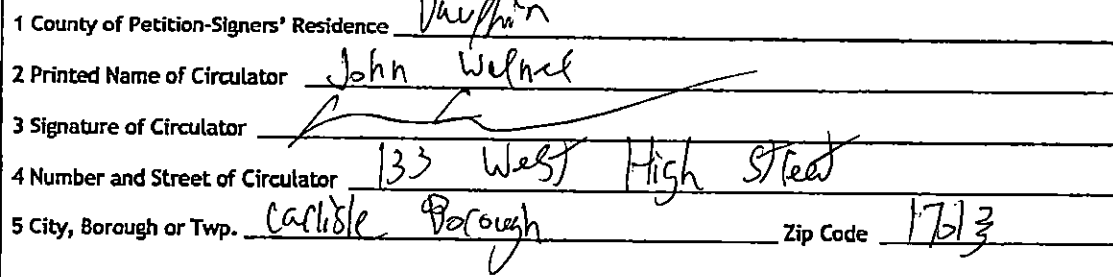 1 County of Petition-Signers' Residence Dauphin
2 Printed Name of Circulator John
3 Signature of Circulator
4 Number and Street of Circulator 133 West High Street
5 City, Borough or Twp. Carlisle Borough Zip Code 17013